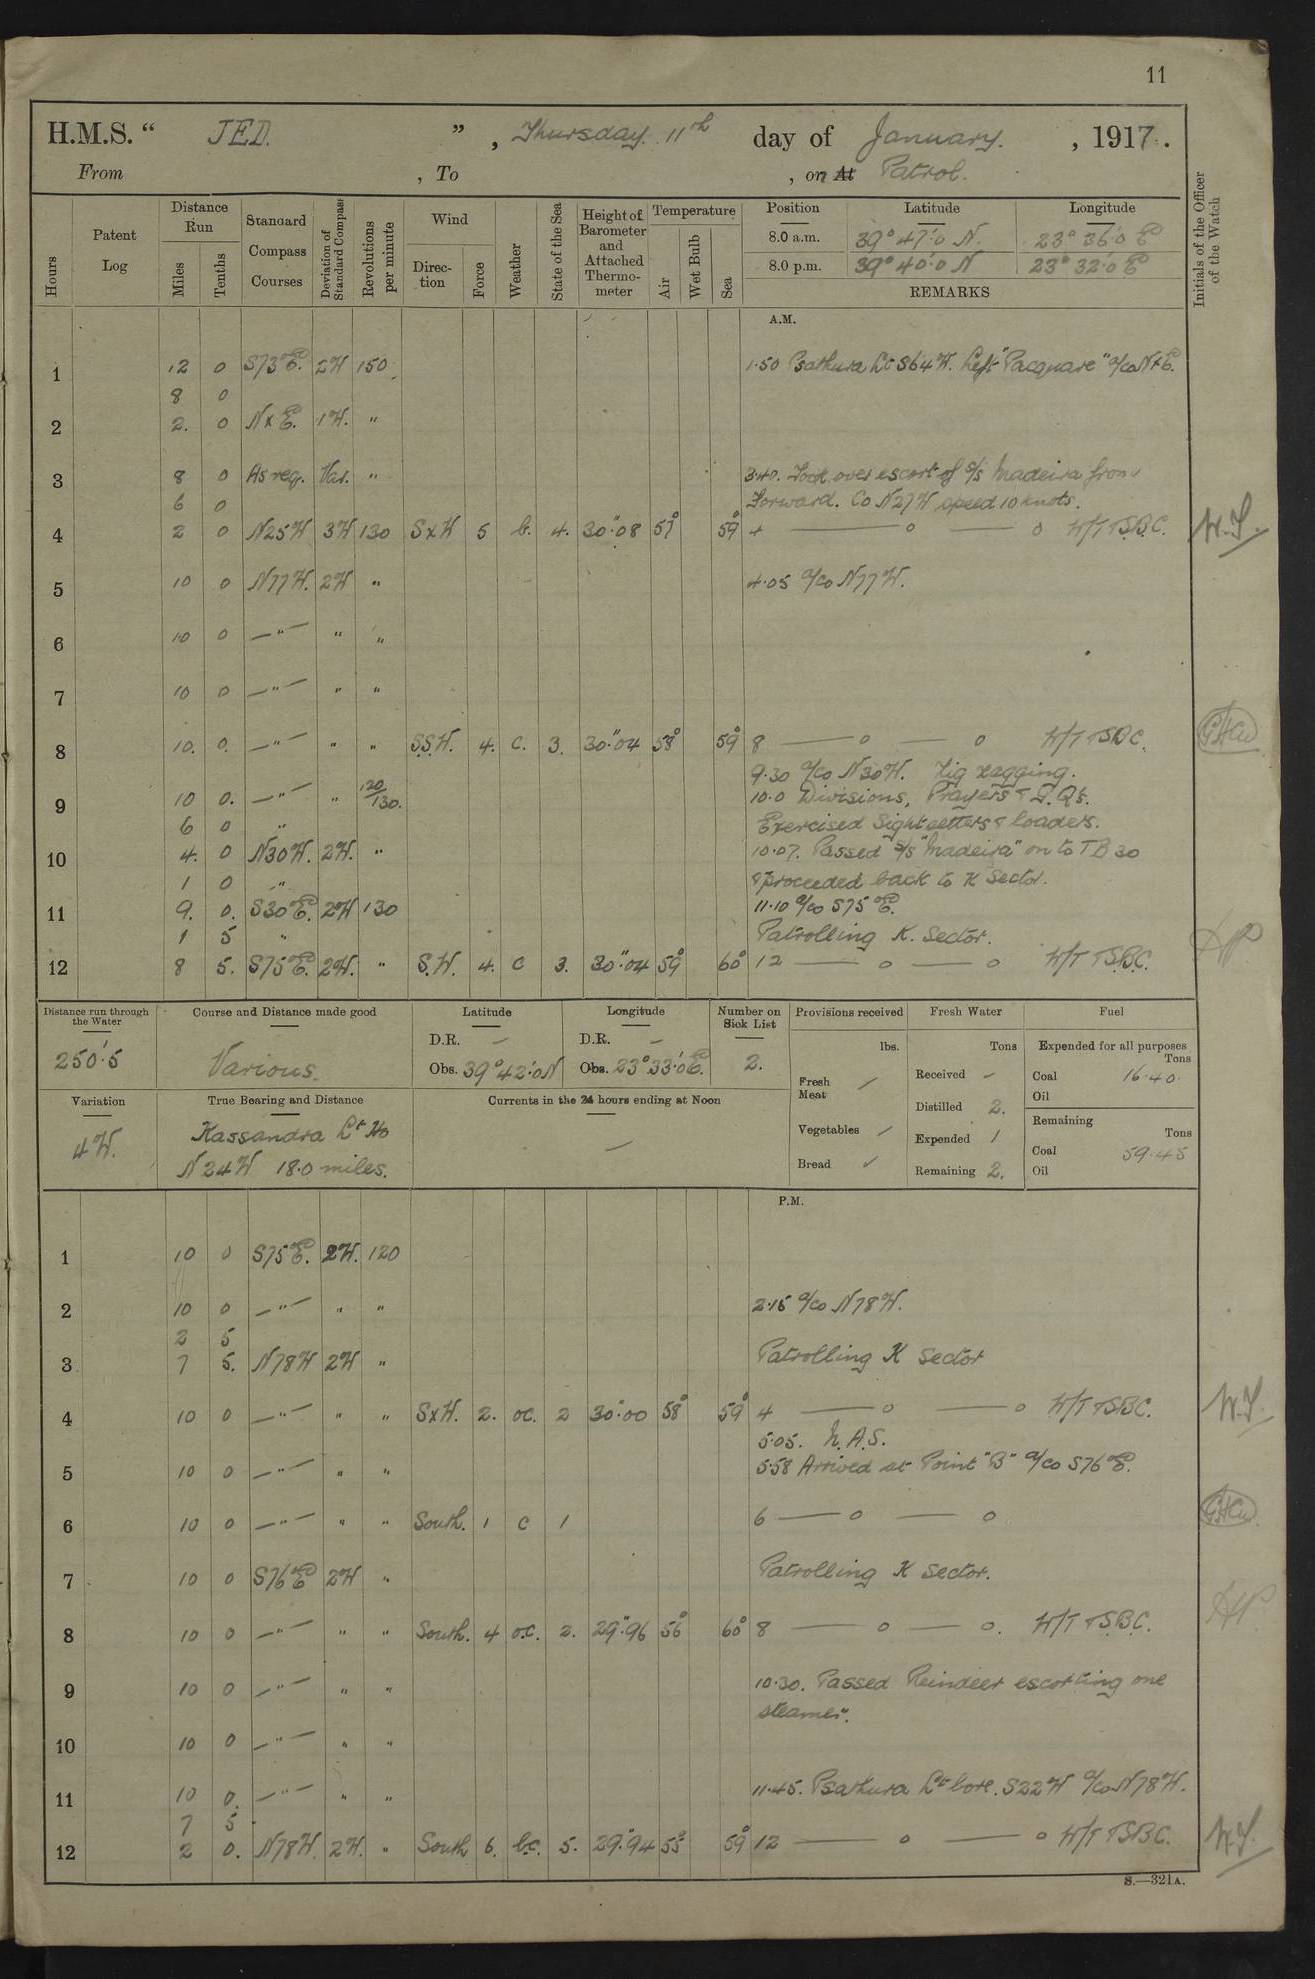 11
H.M.S. " JED. ", Thursday. 11th day of January. , 1917.
From , To , on At Patrol.
Hours Patent Log Distance Run Miles Tenths Standard Compass Courses Deviation of Standard Compass Revolutions per minute Wind Direction Force Weather State of the Sea Height of Barometer and Attached Thermometer Temperature Air Wet Bulb Sea Position Latitude Longitude
8.0 a.m. 39° 47'.0 N. 23° 36'.0 E
8.0 p.m. 39° 40'.0 N 23° 32'.0 E
REMARKS
Initials of the Officer of the Watch
A.M.
1 12 0 S73°E. 2W 150 1.50 Psathura Lt S64W. Left "Pacquare" a/co NxE.
8 0
2 2. 0 NxE. 1W. "
3 8 0 As req. Var. " 3.40. Took over escort of s/s Madeira from
6 0 Forward. Co N27W speed 10 knots.
4 2 0 N25W 3W 130 SxW 5 b. 4. 30".08 57° 59° 4 — o — o W/T TSBC. W.S.
5 10 0 N77W. 2W " 4.05 a/co N77W.
6 10 0 — " — " "
7 10 0 — " — " "
8 10. 0. — " — " " S.S.W. 4. C. 3. 30".04 58° 59° 8 — o — o W/T TSBC.
9.30 a/co N30W. Zig zagging.
9 10 0. — " — " 120/130. 10.0 Divisions, Prayers & G.Qs.
6 0 " Exercised Sightsetters & loaders.
10 4. 0 N30W. 2W. " 10.07. Passed s/s "Madeira" on to TB 30
1 0 " & proceeded back to K Sector.
11 9. 0. S30°E. 2W 130 11.10 a/co S75°E.
1 5 " Patrolling K. Sector.
12 8 5. S75°E. 2W. " S.W. 4. C 3. 30".04 59° 60° 12 — o — o W/T TSBC.
Distance run through the Water Course and Distance made good Latitude Longitude Number on Sick List Provisions received Fresh Water Fuel
250'.5 Various. D.R. — D.R. — 2. lbs. Tons Expended for all purposes Tons
Obs. 39° 42'.0 N Obs. 23° 33'.0 E. Fresh Meat / Received — Coal 16.40.
Oil
Variation True Bearing and Distance Currents in the 24 hours ending at Noon Distilled 2. Remaining Tons
4W. Kassandra Lt Ho — Vegetables / Expended 1 Coal 59.45
N24W 18.0 miles. Bread ✓ Remaining 2. Oil
P.M.
1 10 0 S75°E. 2W. 120
2 10 0 — " — " " 2.15 a/co N78W.
2 5
3 7 5. N78W 2W " Patrolling K Sector
4 10 0 — " — " " SxW. 2. oc. 2 30".00 58° 59° 4 — o — o W/T TSBC. W.S.
5.05. N.A.S.
5 10 0 — " — " " 5.58 Arrived at Point "B" a/co S76°E.
6 10 0 — " — " " South. 1 C 1 6 — o — o
7 10 0 S76°E 2W " Patrolling K Sector.
8 10 0 — " — " " South. 4 o.c. 2. 29".96 56° 60° 8 — o — o. W/T TSBC.
9 10 0 — " — " " 10.30. Passed Reindeer escorting one
steamer.
10 10 0 — " — " "
11 10 0. — " — " " 11.45. Psathura Lt bore. S22W a/co N78W.
7 5
12 2 0. N78W. 2W. " South 6. b.c. 5. 29".94 55° 59° 12 — o — o W/T TSBC. W.S.
S.—321A.